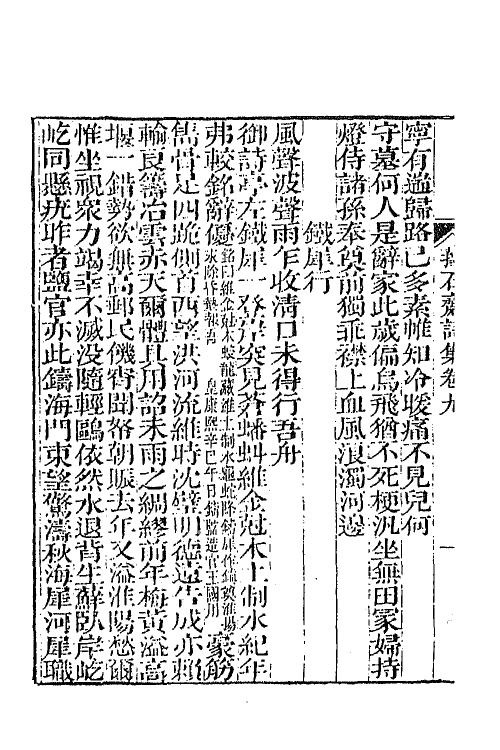 籜石齋詩集卷九
一
寧有過歸路已多素帷知冷暖痛不見兒何
守墓何人是辭家此歲偏烏飛猶不死梗汎坐無田冢婦持
燈侍諸孫奉奠前獨乖襟上血風浪濁河邊
鐵犀行
風聲波聲雨乍收清口未得行吾舟
御詩亭左鐵犀一登岸突見蒼蟠虬維金尅木土制水紀年
弗較銘辭優銘曰維金尅木蛟龍藏維土制水龜蛇降鑄犀作鎮奠淮揚永除昏墊報吾皇康熙辛巳午日鑄監造官王國用豪筋
雋骨足四跪側首西望洪河流維時沈璧明德遠告成亦賴
輸良籌冶雲赤天爾體具用詔未雨之綢繆前年梅黃溢高
堰一錯勢欲無高郵民饑宵聞畚朝賑去年又溢淮陽愁爾
惟坐視衆力竭幸不滅没隨輕鷗依然水退背生蘚臥岸屹
屹同懸疣昨者鹽官亦此鑄海門東望驚濤秋海犀河犀職